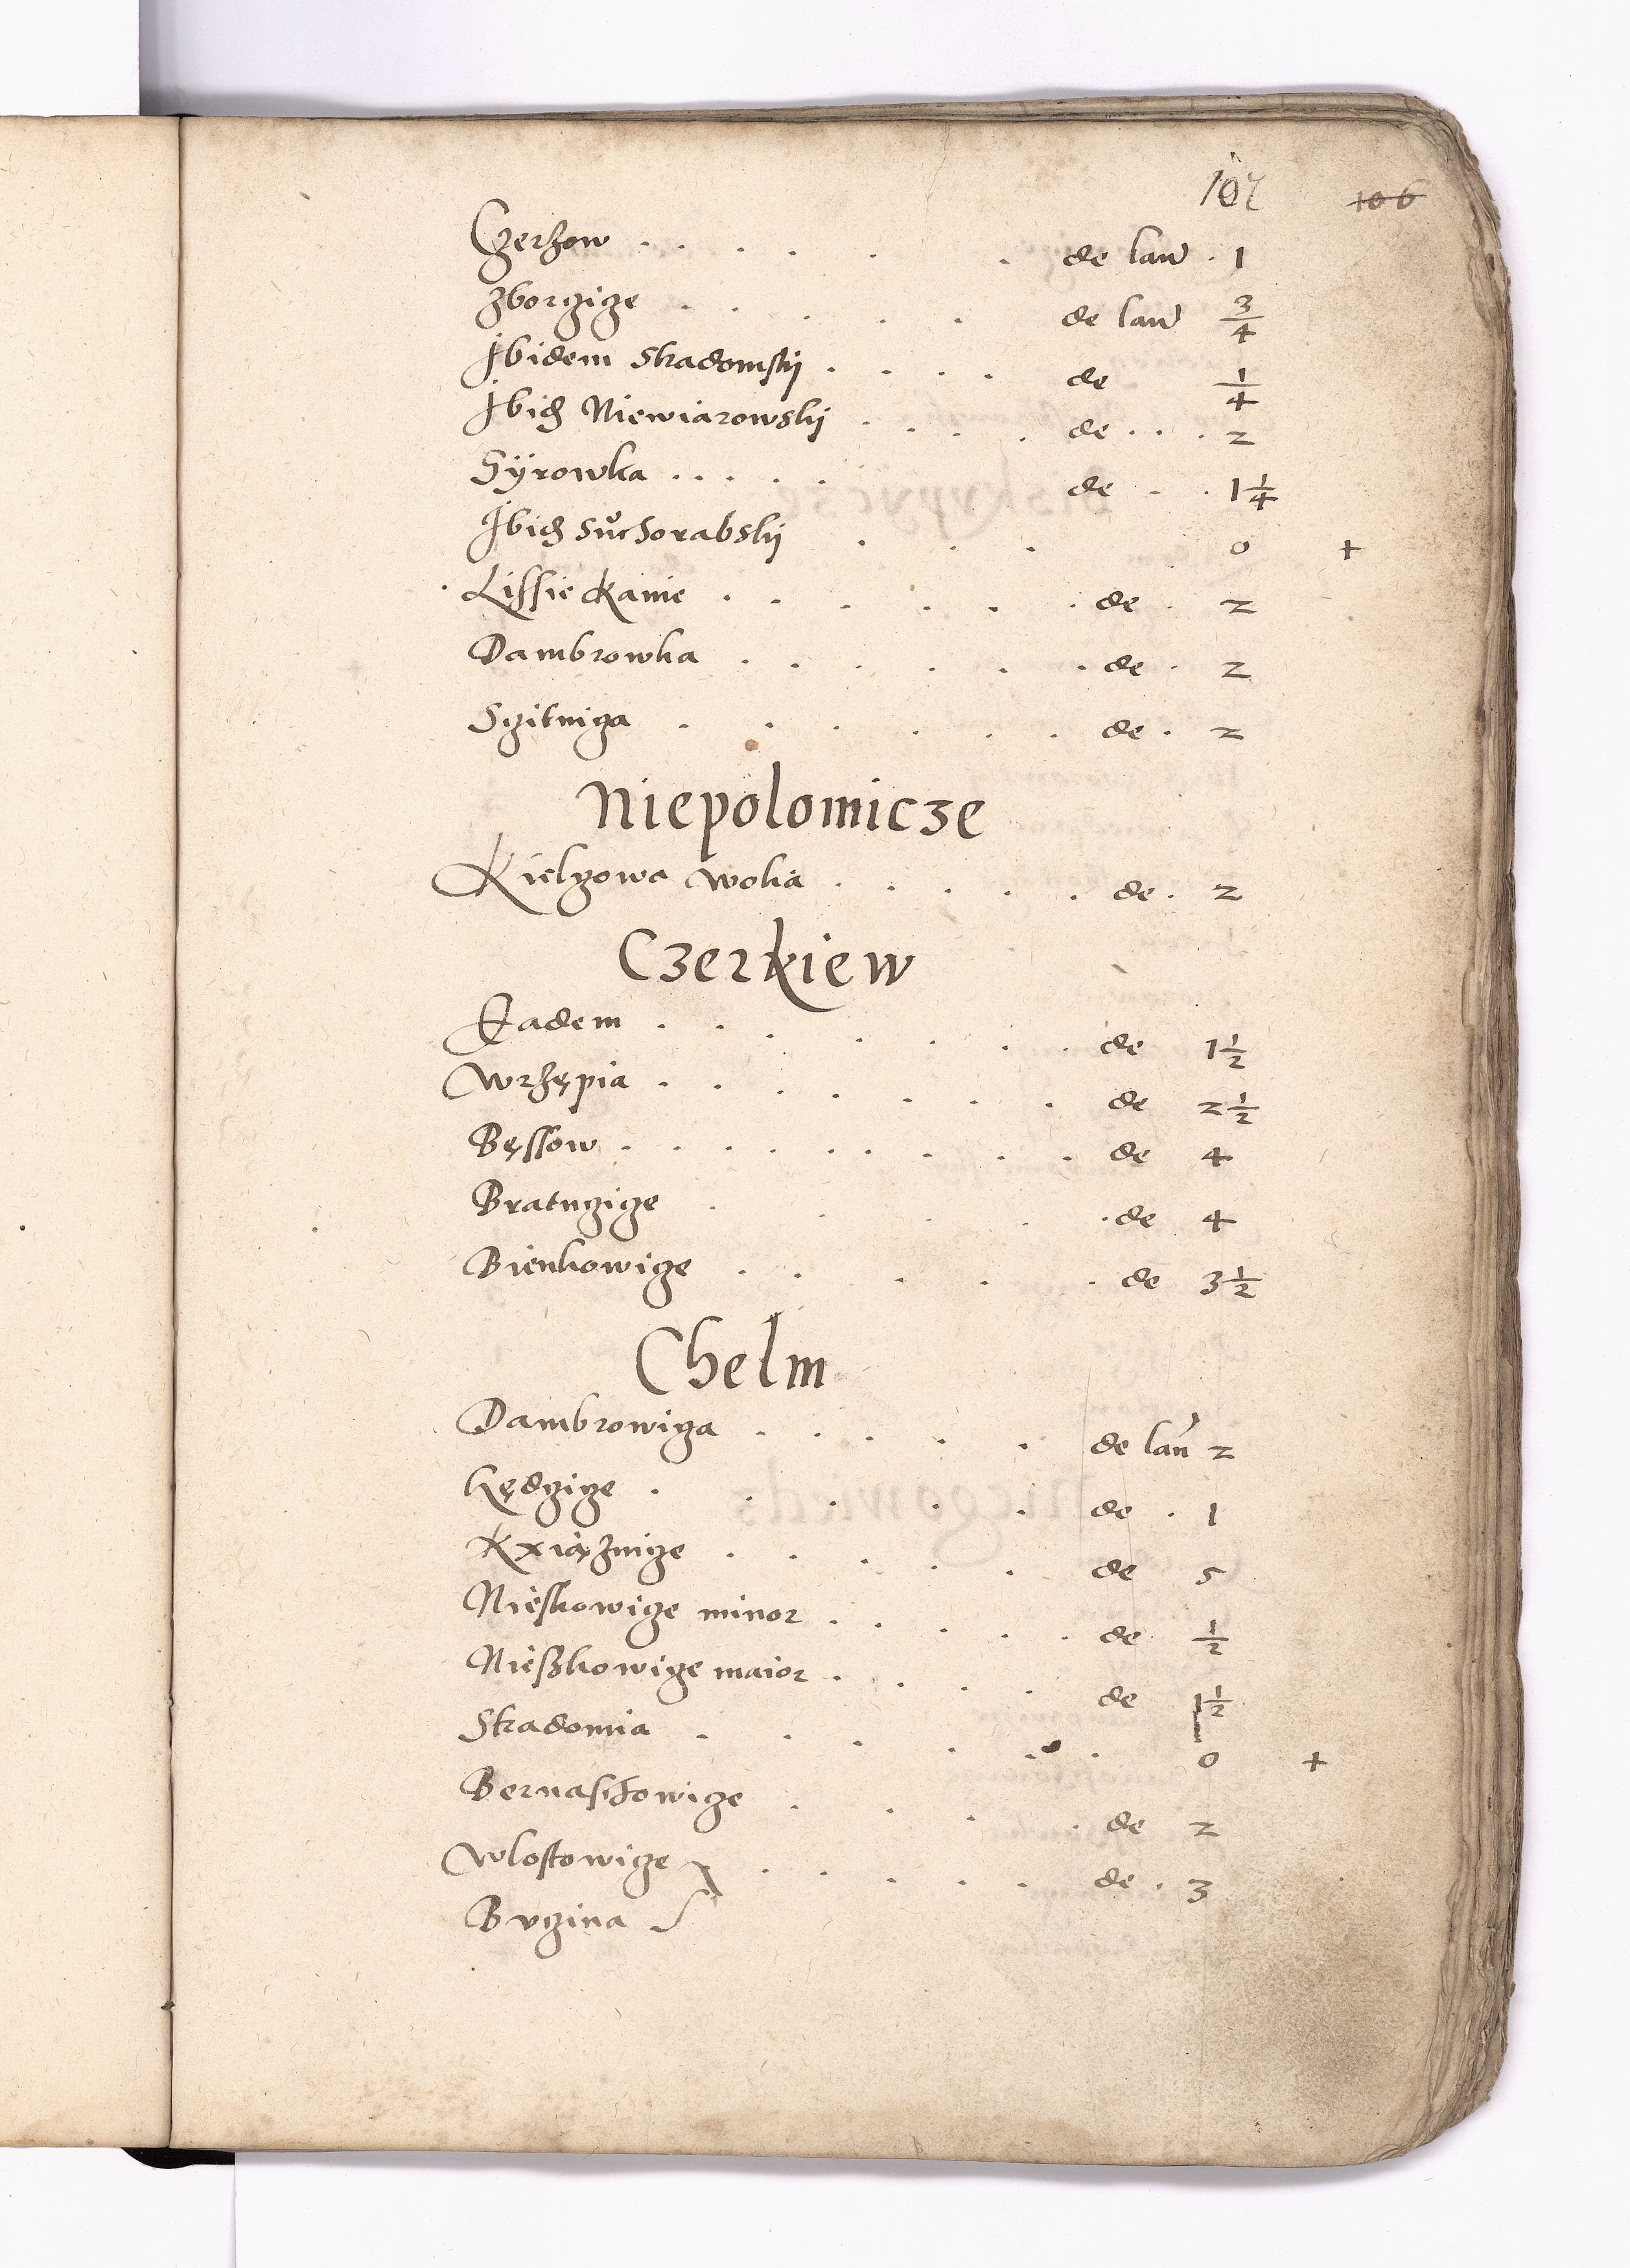 107 106
Czerzow . . . . . . de lan . 1
Zborczicze . . . . . de lan 3/4
Ibidem Skadomskij . . . . de 1/4
Ibid Niewiarowskij . . . . de . . . 2
Sÿrowka . . . . . de . . 1 1/4
Ibid Sůchorabskij . . . 0 +
Lissie Kanie . . . . . . de . 2
Dambrowka . . . . . . de . 2
Sczitnicza . . . . . . de . 2
Niepolomicze
Kielczowa Wolia . . . . . de . 2
Czerkiew
Eadem . . . . . . . de 1 1/2
Wrzępia . . . . . . . de 2 1/2
Bęssow . . . . . . . . . de 4
Bratuczicze . . . . . de 4
Bienkowicze . . . . . de 3 1/2
Chelm
Dambrowicza . . . . . de lan 2
Lędzicze . . . . . de . 1
Kxiąznicze . . . . . de 5
Nieskowicze minor . . . . . de 1/2
Nieszkowicze maior . . . . de 1 1/2
Skadomia . . . . . . 0 +
Bernaschowicze . . . . de 2
Wlostowicze . . . . . de . 3
Buczina